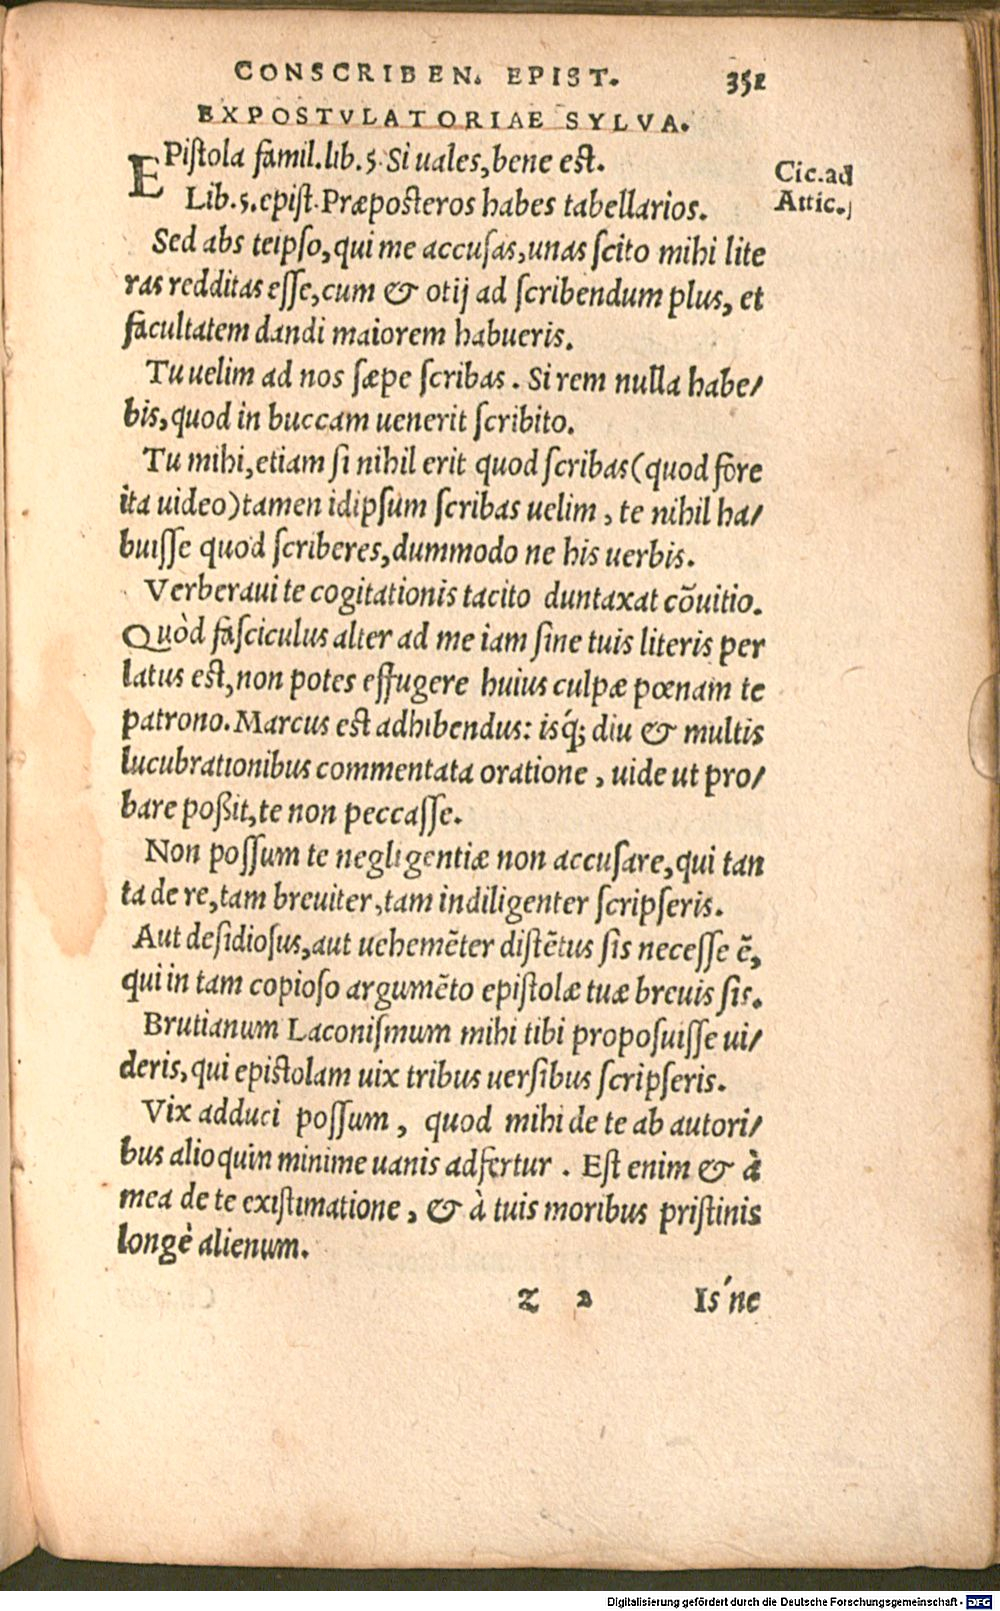 CONSCRIBEN. EPIST. 351
EXPOSTVLATORIAE SYLVA.
EPiſtola famil.lib.5. Si uales,bene eſt.
Cic.ad
Lib.5.epiſt.Præpoſteros habes tabellarios.
Attic.
Sed abs teipſo,qui me accuſas,unas ſcito mihi lite
ras redditas eſſe,cum & otij ad ſcribendum plus, et
facultatem dandi maiorem habueris.
Tu uelim ad nos ſæpe ſcribas. Si rem nulla habe/
bis,quod in buccam uenerit ſcribito.
Tu mihi,etiam ſi nihil erit quod ſcribas(quod fore
ita uideo)tamen idipſum ſcribas uelim, te nihil ha/
buiſſe quod ſcriberes,dummodo ne his uerbis.
Verberaui te cogitationis tacito duntaxat cõuitio.
Quòd faſciculus alter ad me iam ſine tuis literis per
latus eſt,non potes effugere huius culpæ pœnam te
patrono. Marcus est adhibendus: isq́; diu & multis
lucubrationibus commentata oratione, uide ut pro/
bare poßit,te non peccaſſe.
Non poſſum te negligentiæ non accuſare,qui tan
ta de re,tam breuiter,tam indiligenter ſcripſeris.
Aut deſidioſus,aut uehemẽter diſtẽtus ſis neceſſe ẽ,
qui in tam copioſo argumẽto epiſtolæ tuæ breuis ſis.
Brutianum Laconiſmum mihi tibi propoſuiſſe ui/
deris,qui epiſtolam uix tribus uerſibus ſcripſeris.
Vix adduci poſſum, quod mihi de te ab autori/
bus alioquin minime uanis adfertur. Eſt enim & à
mea de te exiſtimatione, & à tuis moribus priſtinis
longè alienum.
Z 2 Is'ne
Digitalisierung gefördert durch die Deutsche Forschungsgemeinschaft - DFG